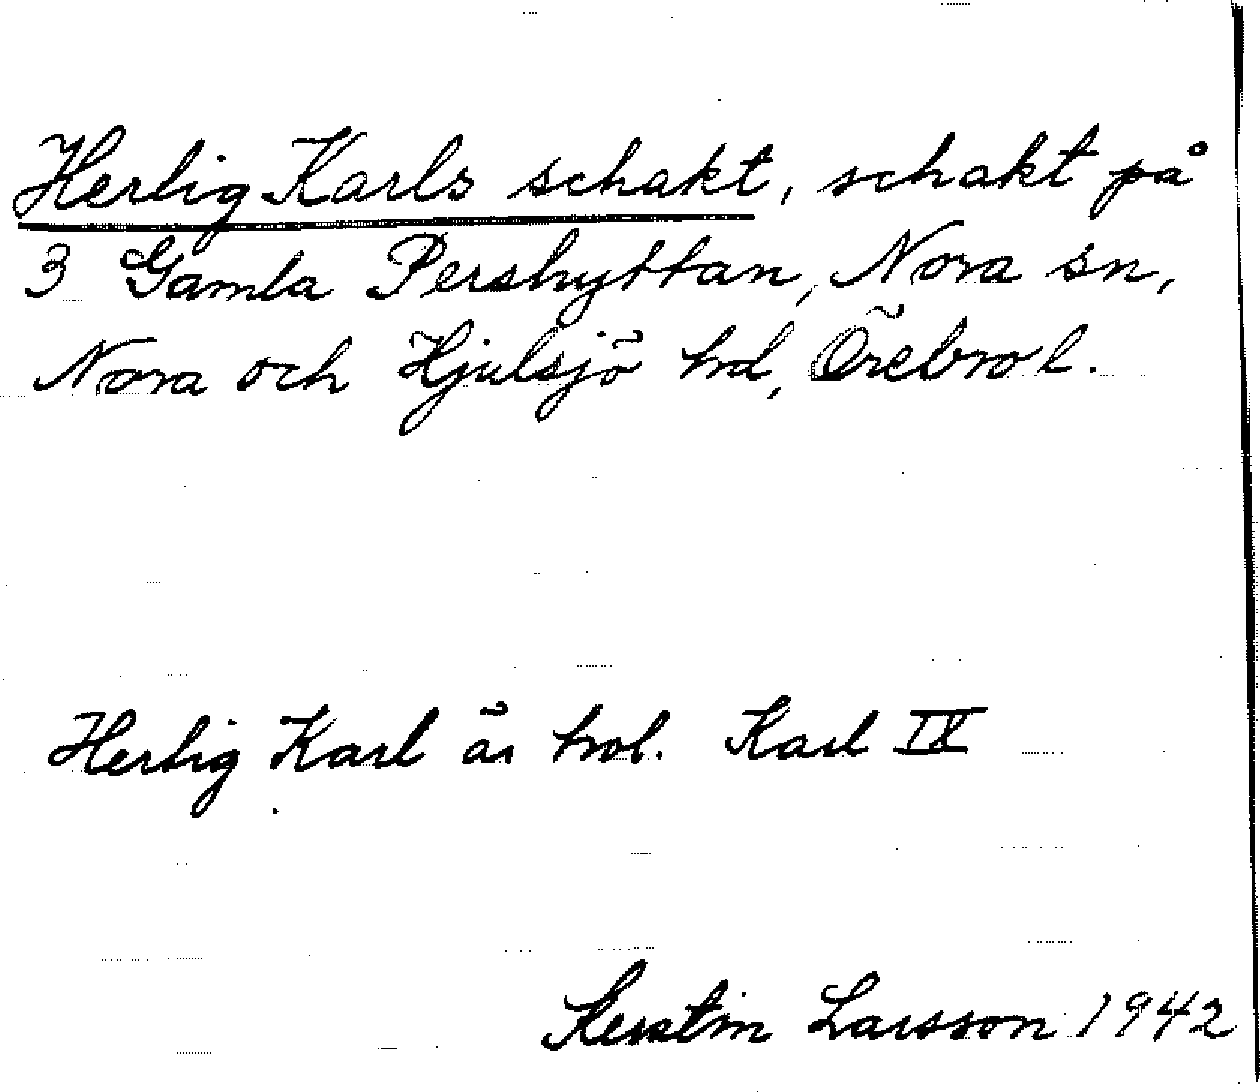 Hertig Karls schakt, schakt på
3 Gamla Pershyttan, Nora sn,
Nora och Hjulsjö hd, Örebro l.
Hertig Karl är trol. Karl IX
Kerstin Larsson 1942